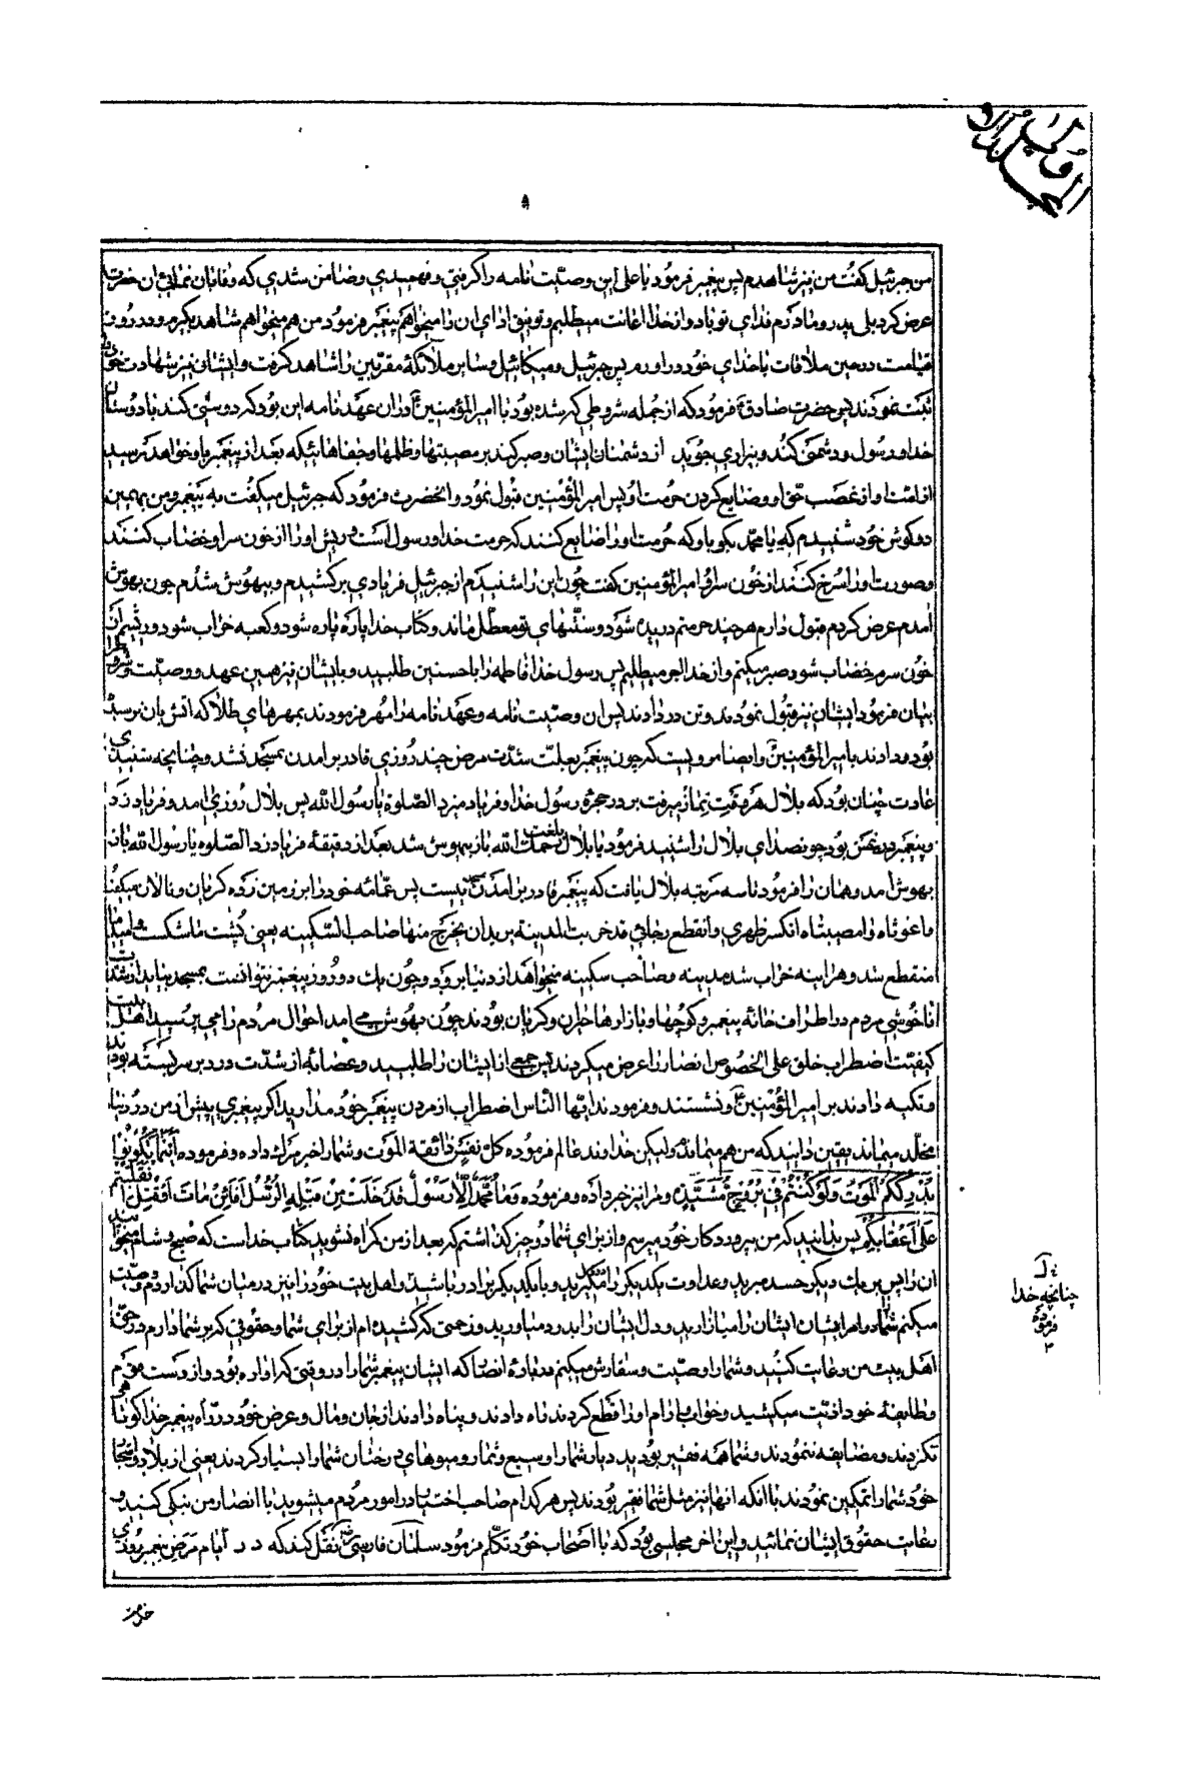 المجلد الاول
٨
من جبرئیل گفت من نیز شاهدم پس پیغمبر فرمود یا علی این وصیت نامه را گرفتی و فهمیدی و ضامن شدی که وفا بان نمائی ان حضرت
عرض کرد بلی پدر و مادرم فدای تو باد و از خدا اعانت میطلبم و توفیق ادای ان را میخواهم پیغمبر فرمود من هم میخواهم شاهد بگیرم و در روز
قیامت در حین ملاقات با خدای خود در اورم پس جبرئیل و میکائیل و سایر ملائکهٔ مقربین را شاهد گرفت و ایشان نیز شهادت خود را
ثبت نمودند پس حضرت صادق فرمود که از جمله شروطی که شده بود با امیرالمؤمنین در ان عهد نامه این بود که دوستی کند با دوستان
خدا و رسول و دشمنی کند و بیزاری جوید از دشمنان ایشان و صبر کند بر مصیبتها و ظلمها و جفاهائیکه بعد از پیغمبر باو خواهد رسید
از امت او از غصب حق او و ضایع کردن حرمت او پس امیرالمؤمنین قبول نمود و انحضرت فرمود که جبرئیل میگفت به پیغمبر و من بهمین
دو گوش خود شنیدم که یا محمد بگو باو که حرمت او را ضایع کنند که حرمت خدا و رسول است و ریش او را از خون سر او خضاب کنند
و صورت او را سرخ کنند از خون سر او امیرالمؤمنین گفت چون این را شنیدم از جبرئیل فریادی برکشیدم و بیهوش شدم چون بهوش
امدم عرض کردم قبول دارم هر چند حرمتم دریده شود و سنتهای تو معطل ماند و کتاب خدا پاره پاره شود و کعبه خراب شود و ریشم از
خون سرم خضاب شود صبر میکنم و از خدا اجر میطلبم پس رسول خدا فاطمه را با حسنین طلبید و بایشان نیز همین عهد و وصیت و شروط را
بیان فرمود ایشان نیز قبول نمودند و تن در دادند پس ان وصیت نامه و عهد نامه را مهر فرمودند بمهرهای طلا که اتش بان نرسیده
بود و دادند بامیرالمؤمنین و ایضا مرویست که چون پیغمبر بعلت شدت مرض چند روزی قادر بر امدن بمسجد نشد و چنانچه شنیدی
عادت چنان بود که بلال هر وقت نماز میرفت بر در حجره رسول خدا و فریاد میزد الصلوة یا رسول الله پس بلال روزی امد و فریاد زد
و پیغمبر در غش بود چون صدای بلال را شنید فرمود یا بلال بلغت رحمک الله باز بیهوش شد بعد از دقیقهٔ فریاد زد الصلوه یا رسول الله باز
بهوش امد و همان را فرمود تا سه مرتبه بلال یافت که پیغمبر قادر بر امدن مسجد نیست پس عمامه خود را بر زمین زده گریان و نالان میگفت
وا غوثاه وا مصیبتاه انکسر ظهری و انقطع رجائی قد خربت المدینة یریدان یخرج منها صاحب السکینه یعنی پشت ما شکست و امید ما
منقطع شد و هراینه خراب شد مدینه و صاحب سکینه میخواهد از دنیا برود و چون یک دو روز پیغمبر نتوانست بمسجد بیاید از شدت
ناخوشی مردم در اطراف خانه پیغمبر و کوچها و بازارها حیران و گریان بودند چون بهوش می امد احوال مردم را می پرسید اهل بیت
کیفیت اضطراب خلق علی الخصوص انصار را عرض میکردند پس جمعی از ایشان را طلبید و عصابه از شدت درد بر سر بسته بودند
و تکیه دادند بر امیرالمؤمنین و نشستند و فرمودند ایها الناس اضطراب از مردن پیغمبر خود مدارید اگر پیغمبری پیش از من در دنیا
مخلد میماند یقین دانید که من هم میماندم ولیکن خداوند عالم فرموده کل نفس ذائقة الموت و شما را خبر مرگ داده و فرموده اینما تکونوا
یدرککم الموت ولو کنتم فی بروج مشیدة و مرا نیز خبر داده و فرموده وما محمد الا رسول قد خلت من قبله الرسل افائن مات او قتل انقلبتم
علی اعقابکم پس بدانید که من میروم و بکار خود میرسم و از برای شما دو چیز گذاشتم که بعد از من گمراه نشوید کتاب خداست که صبح و شام میخوانید
ان را پس بر یک دیگر حسد مبرید و عداوت یکدیگر را مگیرید و با یکدیگر برادر باشید و اهل بیت خود را نیز در میان شما گذاردم و وصیت
میکنم شما را در امر ایشان ایشان را میازارید و دل ایشان را بدرد میاورید و زحمتی که کشیده ام از برای شما و حقوقی که بر شما دارم در حق
اهل بیت من رعایت کنید و شما را وصیت و سفارش میکنم در باره انصار که ایشان پیغمبر شما را در وقتی که اواره بود و از دست قوم
و طایفه خود اذیت میکشید و خواب و ارام او را قطع کردند راه دادند و پناه دادند از جان و مال و عرض خود در راه پیغمبر خدا کوتاهی
نکردند و مضایقه ننمودند و شما همه فقیر بودید دیار شما را وسیع و ثمار و میوهای درختان شما را بسیار کردند یعنی از بلاد و اشجار
خود شما را تمکین نمودند با انکه انها نیز مثل شما فقیر بودند پس هر کدام صاحب اختیار در امور مردم میشوید با انصار من نیکی کنید و
رعایت حقوق ایشان نمائید و این اخر مجلسی بود که با اصحاب خود تکلم فرمود سلمان فارسی نقل کند که در ایام مرض پیغمبر روزی
چنانچه خدا
فرموده
خدمت